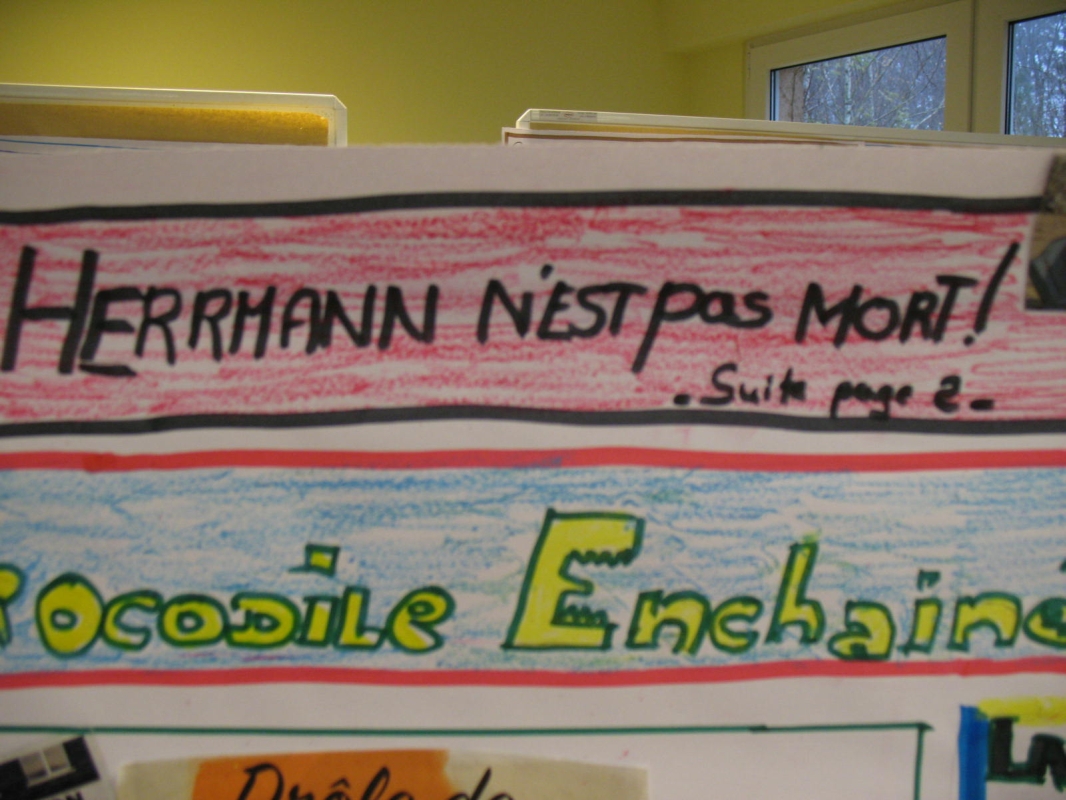 HERRMANN N'EST pas MORT!
- Suite page 2 -
rocodile Enchainé
Drôle de